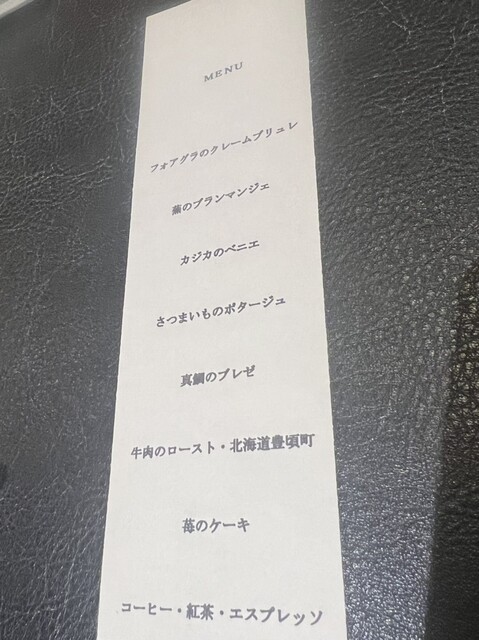 MENU
フォアグラのクレームブリュレ
蕪のブランマンジェ
カジカのベニエ
さつまいものポタージュ
真鯛のブレゼ
牛肉のロースト・北海道豊頃町
苺のケーキ
コーヒー・紅茶・エスプレッソ